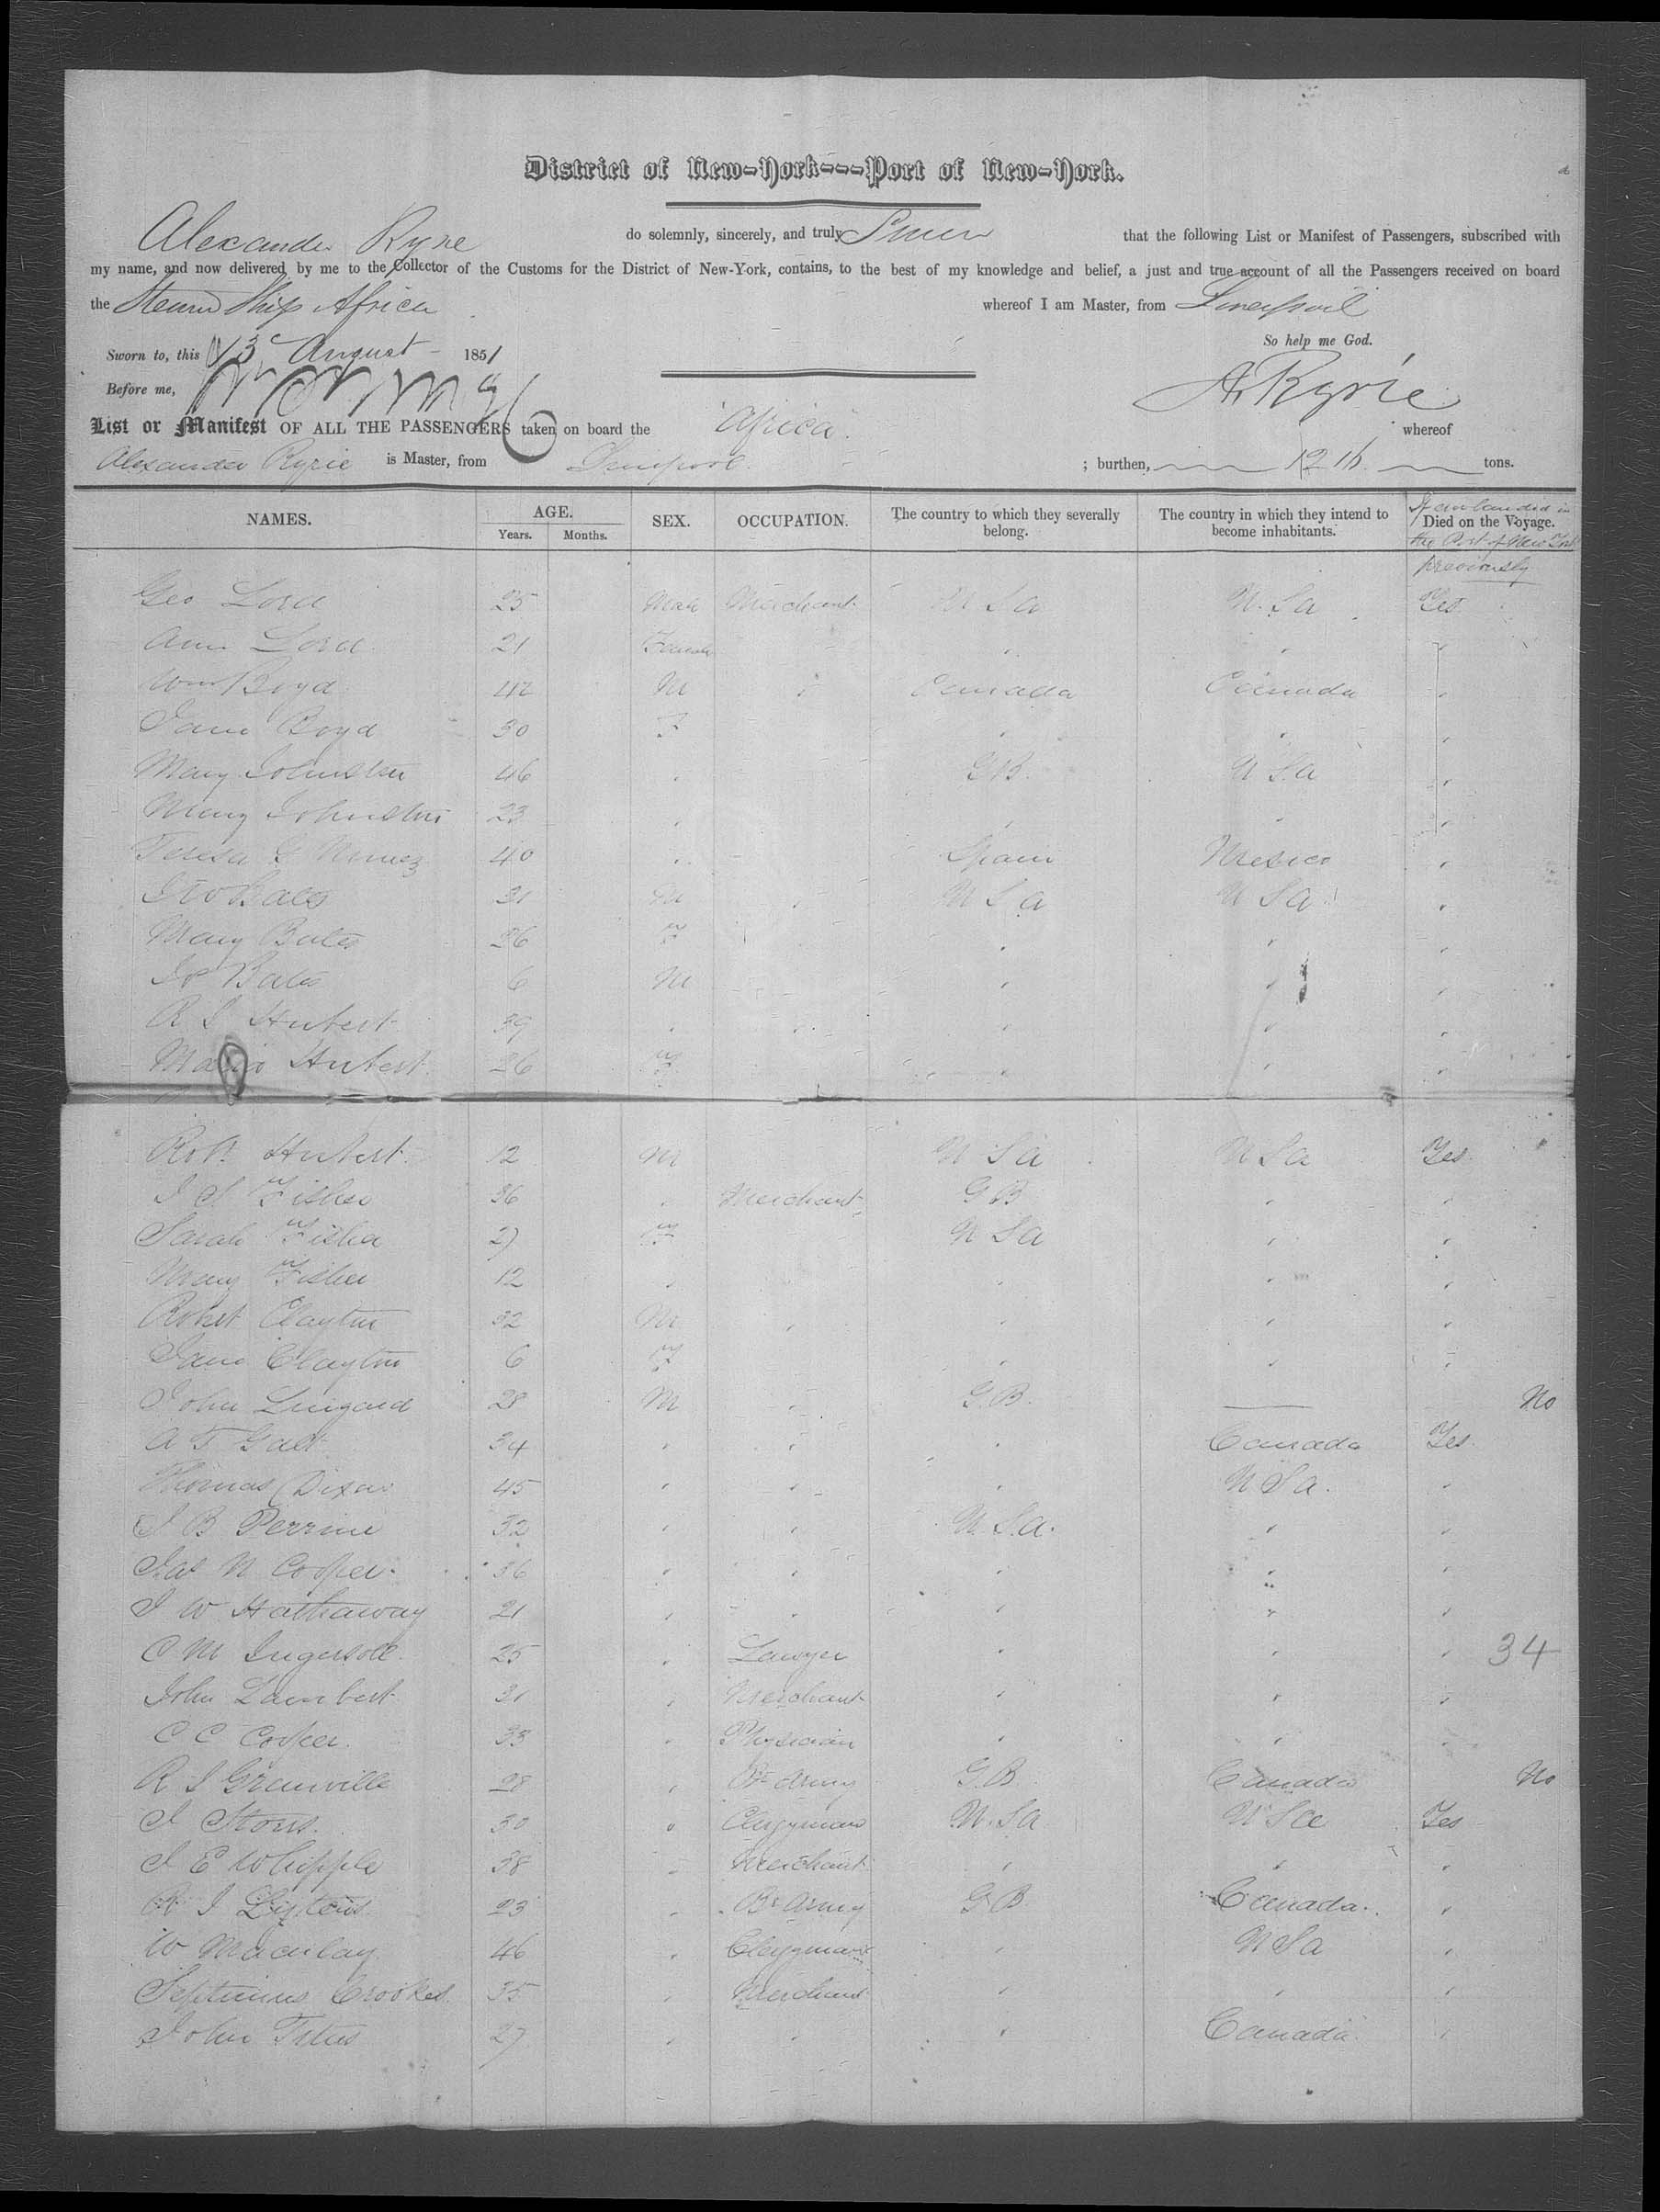 District of New-York---Port of New-York.
Alexander Ryrie do solemnly, sincerely, and truly Swear that the following List or Manifest of Passengers, subscribed with
my name, and now delivered by me to the Collector of the Customs for the District of New-York, contains, to the best of my knowledge and belief, a just and true account of all the Passengers received on board
the Steam Ship Africa whereof I am Master, from Liverpool
So help me God.
Sworn to, this 13 August 1851
Before me,
A. Ryrie
List or Manifest OF ALL THE PASSENGERS taken on board the Africa whereof
Alexander Ryrie is Master, from Liverpool ; burthen, 1216 tons.
NAMES. AGE. Years. Months. SEX. OCCUPATION. The country to which they severally belong. The country in which they intend to become inhabitants. Died on the Voyage.
If ever landed in the Port of New York previously
Geo Lord 25 Male Merchant U S a U. S a Yes
Ann Lord 21 Female " " "
Wm Boyd 42 M " Canada Canada "
Jane Boyd 30 F " " "
Mary Johnston 46 " G B. U S a "
Mary Johnston 23 " " " "
Teresa G 40 " Spain Mexico "
Bates 31 M " U S a U S a "
Mary Bates 26 F " " "
Jos Bates 6 M " " "
R S Hubert 39 " " " " "
Hubert 26 F " " "
Robt Hubert 12 M U S a U S a Yes
J S Fisher 36 " Merchant G B " "
Sarah Fisher 27 F U S a " "
Mary Fisher 12 " " " "
Robert Clayton 32 M " " " "
Jane Clayton 6 F " " "
John Lingard 28 M " G. B. — No
A T Galt 34 " " " Canada Yes
Thomas Dixon 45 " " " U S a. "
J B Perrine 32 " " U. S. a. " "
Jas N Cooper 36 " " " " "
J W Hathaway 21 " " " " "
C M Ingersoll 25 " Lawyer " " " 34
John Lambert 31 " Merchant " " "
C C Cooper 33 " Physician " " "
R S Granville 28 " Br Army G. B Canada No
J Storrs 30 " Clergyman U. S a U S a Yes
J E Whipple 38 " Merchant " " "
R J 23 " Br Army G B Canada "
W Macaulay 46 " Clergyman " U S a "
Septimus Crookes 35 " Merchant " " "
John Titus 27 " " " Canada "